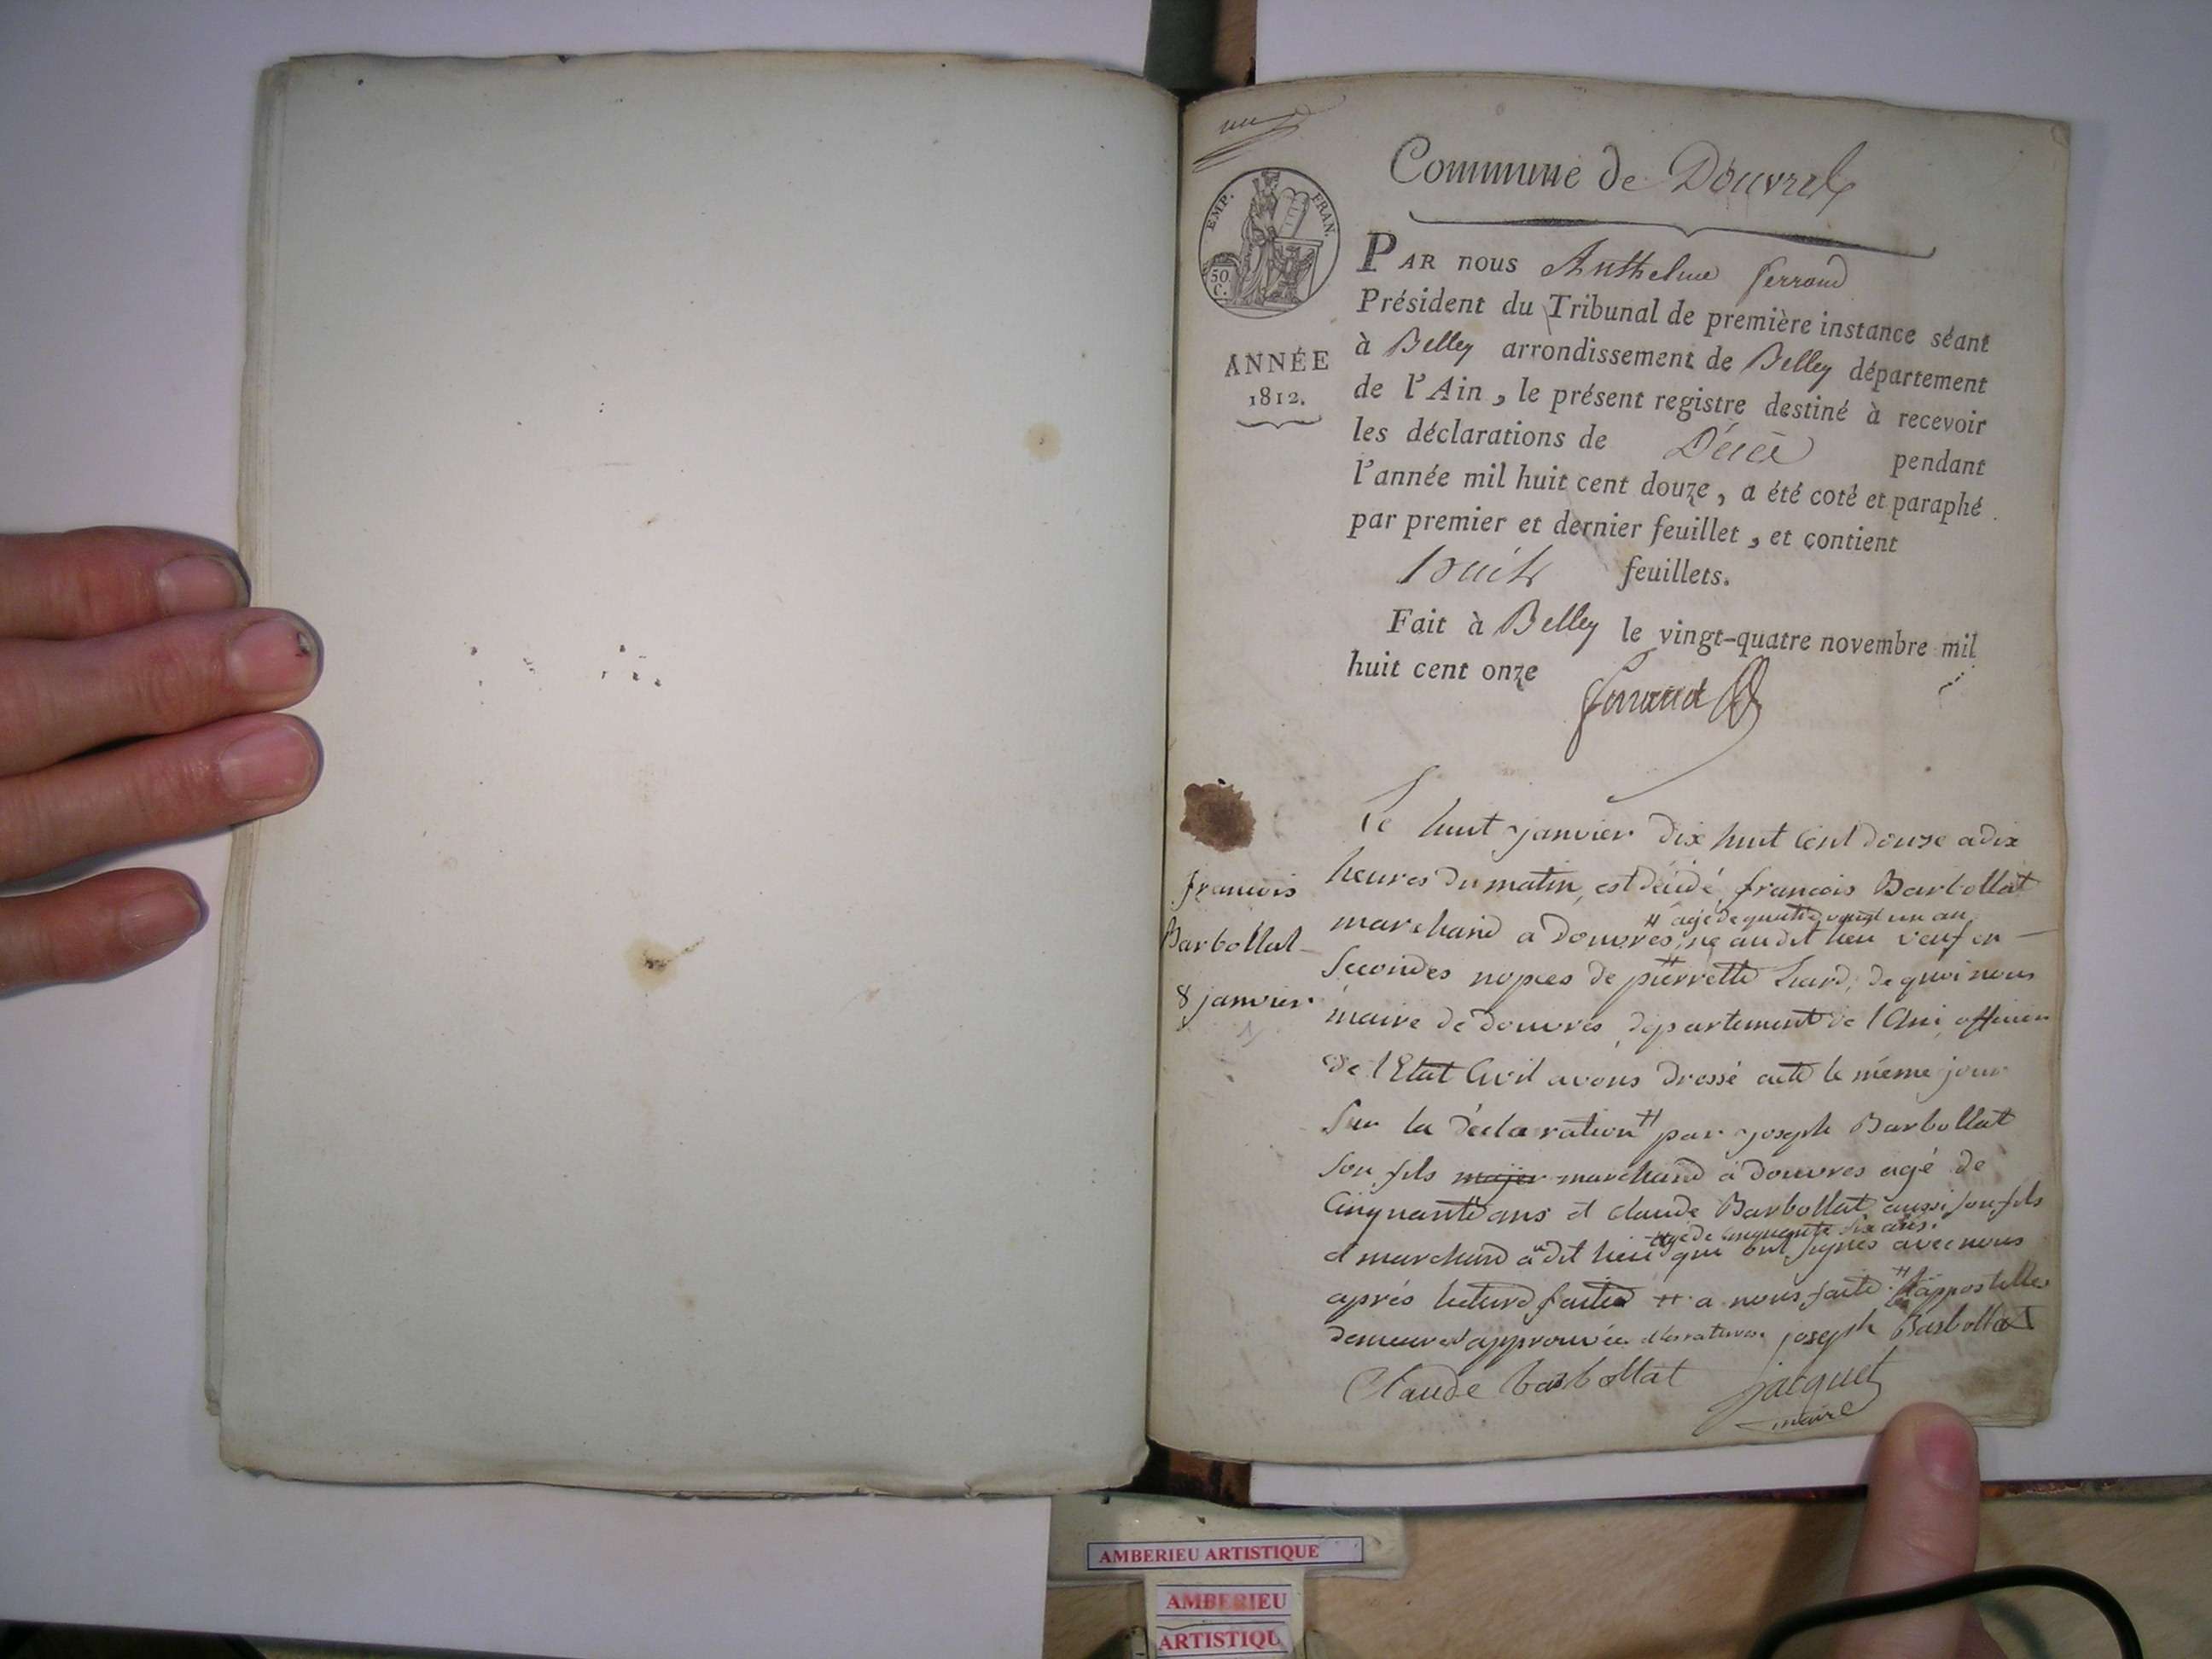 une
EMP. FRAN.
50 C.
ANNÉE
1812.
Commune de Douvres
PAR nous Anthelme ferrand
Président du Tribunal de première instance séant
à Belley arrondissement de Belley département
de l'Ain, le présent registre destiné à recevoir
les déclarations de Décès pendant
l'année mil huit cent douze, a été coté et paraphé
par premier et dernier feuillet, et contient
huit feuillets.
Fait à Belley le vingt-quatre novembre mil
huit cent onze
ferrand
francois
Barbollat
8 janvier
Le huit janvier dix huit Cent douze a dix
heures du matin, est décédé francois Barbollat
# agé de quatre vingt un an
marchand a douvres, né audit lieu veuf en
Secondes nopces de pierrette, de quoi nous
maire de douvres, département de l'Ain, officier
de l'Etat Civil avons dressé acte le même jour
Sur la déclaration # par joseph Barbollat
Son fils majer marchand a douvres agé de
Cinquante ans et claude Barbollat aussi son fils
agé de cinquante six ans.
et marchand audit lieu qui ont signés avec nous
après lecture faite # a nous faite. # appostilles
demeures approuvées et ratures. joseph Barbollat
Claude barbollat jacquet
maire
AMBERIEU ARTISTIQUE
AMBERIEU
ARTISTIQU